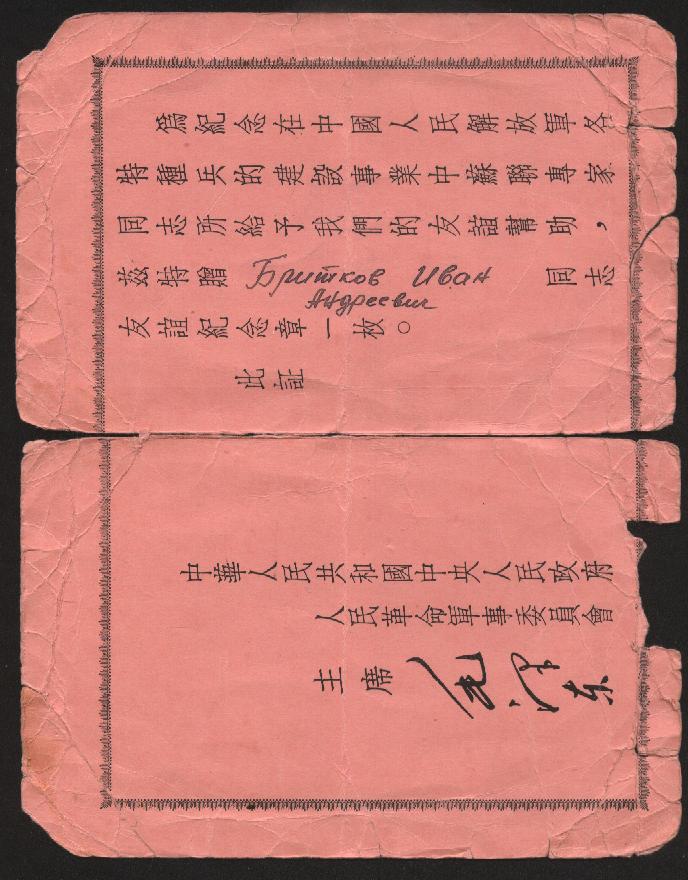 為紀念在中國人民解放軍各
特種兵的建設事業中蘇聯專家
同志所給予我們的友誼幫助，
茲特贈 Бритков Иван Андреевич 同志
友誼紀念章一枚。
此証
中華人民共和國中央人民政府
人民革命軍事委員會
主席 毛澤东